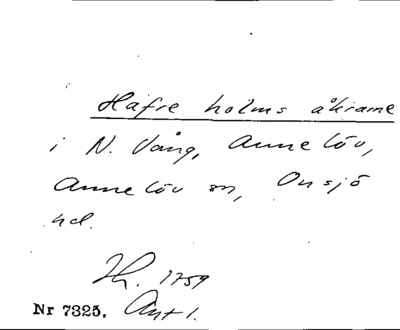 Hafre holms åkrarne
i N. Vång, Annelöv,
Annelöv sn, Onsjö
hd.
Lh. 1759
Nr 7325. Akt 1.